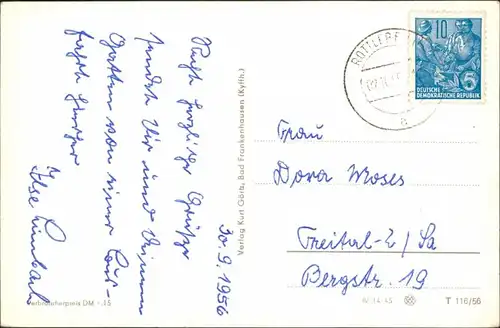 30.9.1956
Recht herzliche Grüße
sendet Dir und Deinem
Gatten von einer Kur-
Ilse
Verbraucherpreis DM -.15
Verlag Kurt Görtz, Bad Frankenhausen (Kyffh.)
ROTTLEBE
10
5
DEUTSCHE
DEMOKRATISCHE REPUBLIK
a
Frau
Dora Moses
Freital-2/Sa
Bergstr. 19
T 116/56